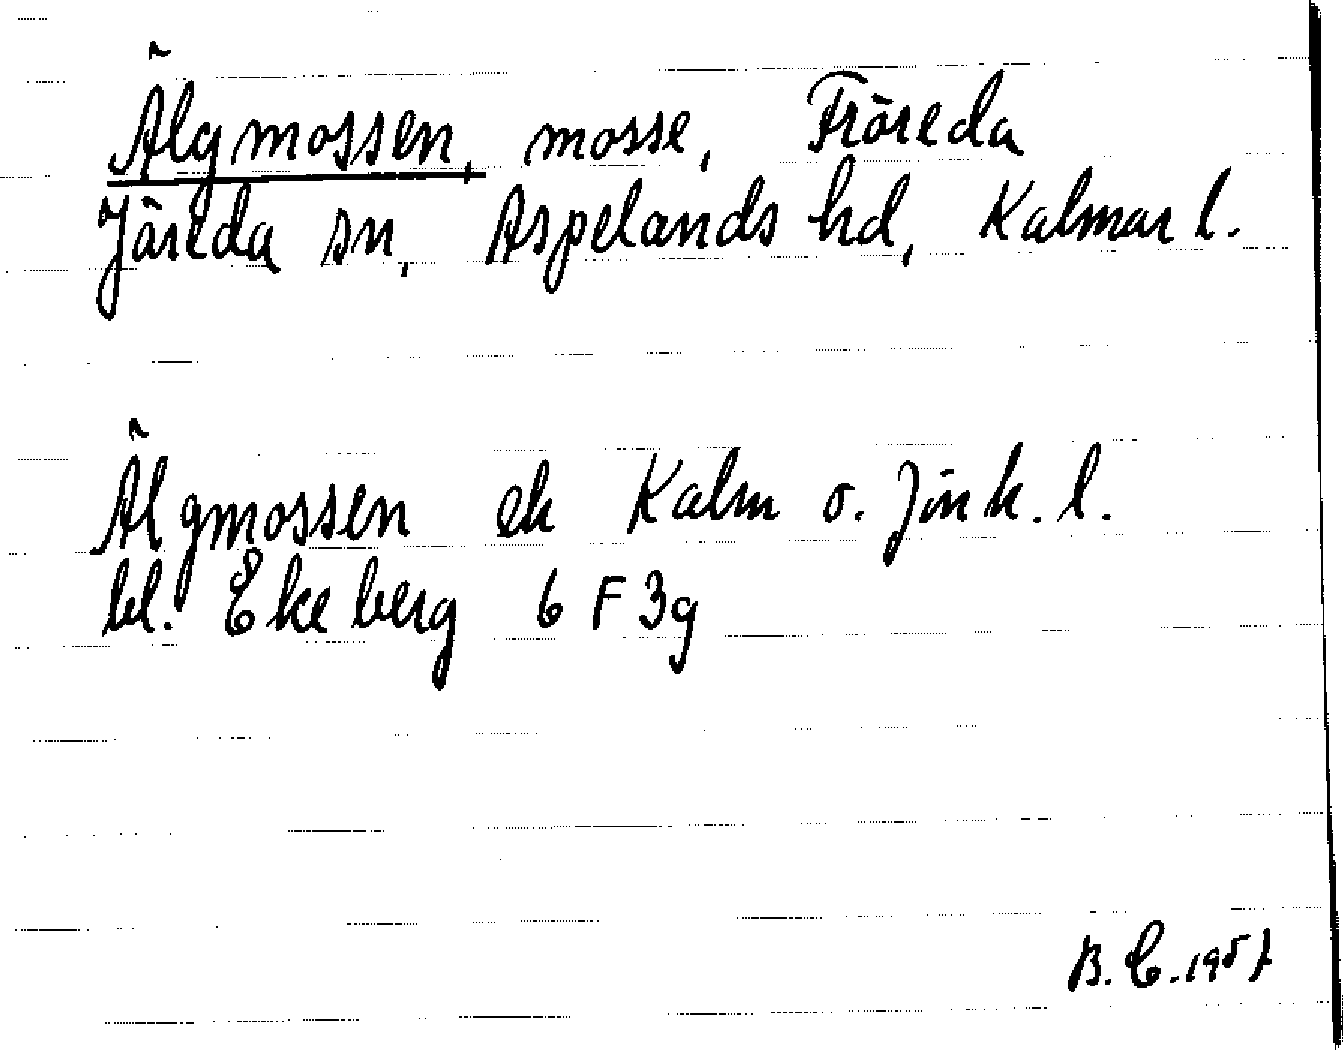 Älgmossen, mosse, Fröreda
Järeda sn, Aspelands hd, Kalmar l.
Älgmossen ek Kalm o. Jönk. l.
bl. Ekeberg 6 F 3g
B. C. 1957